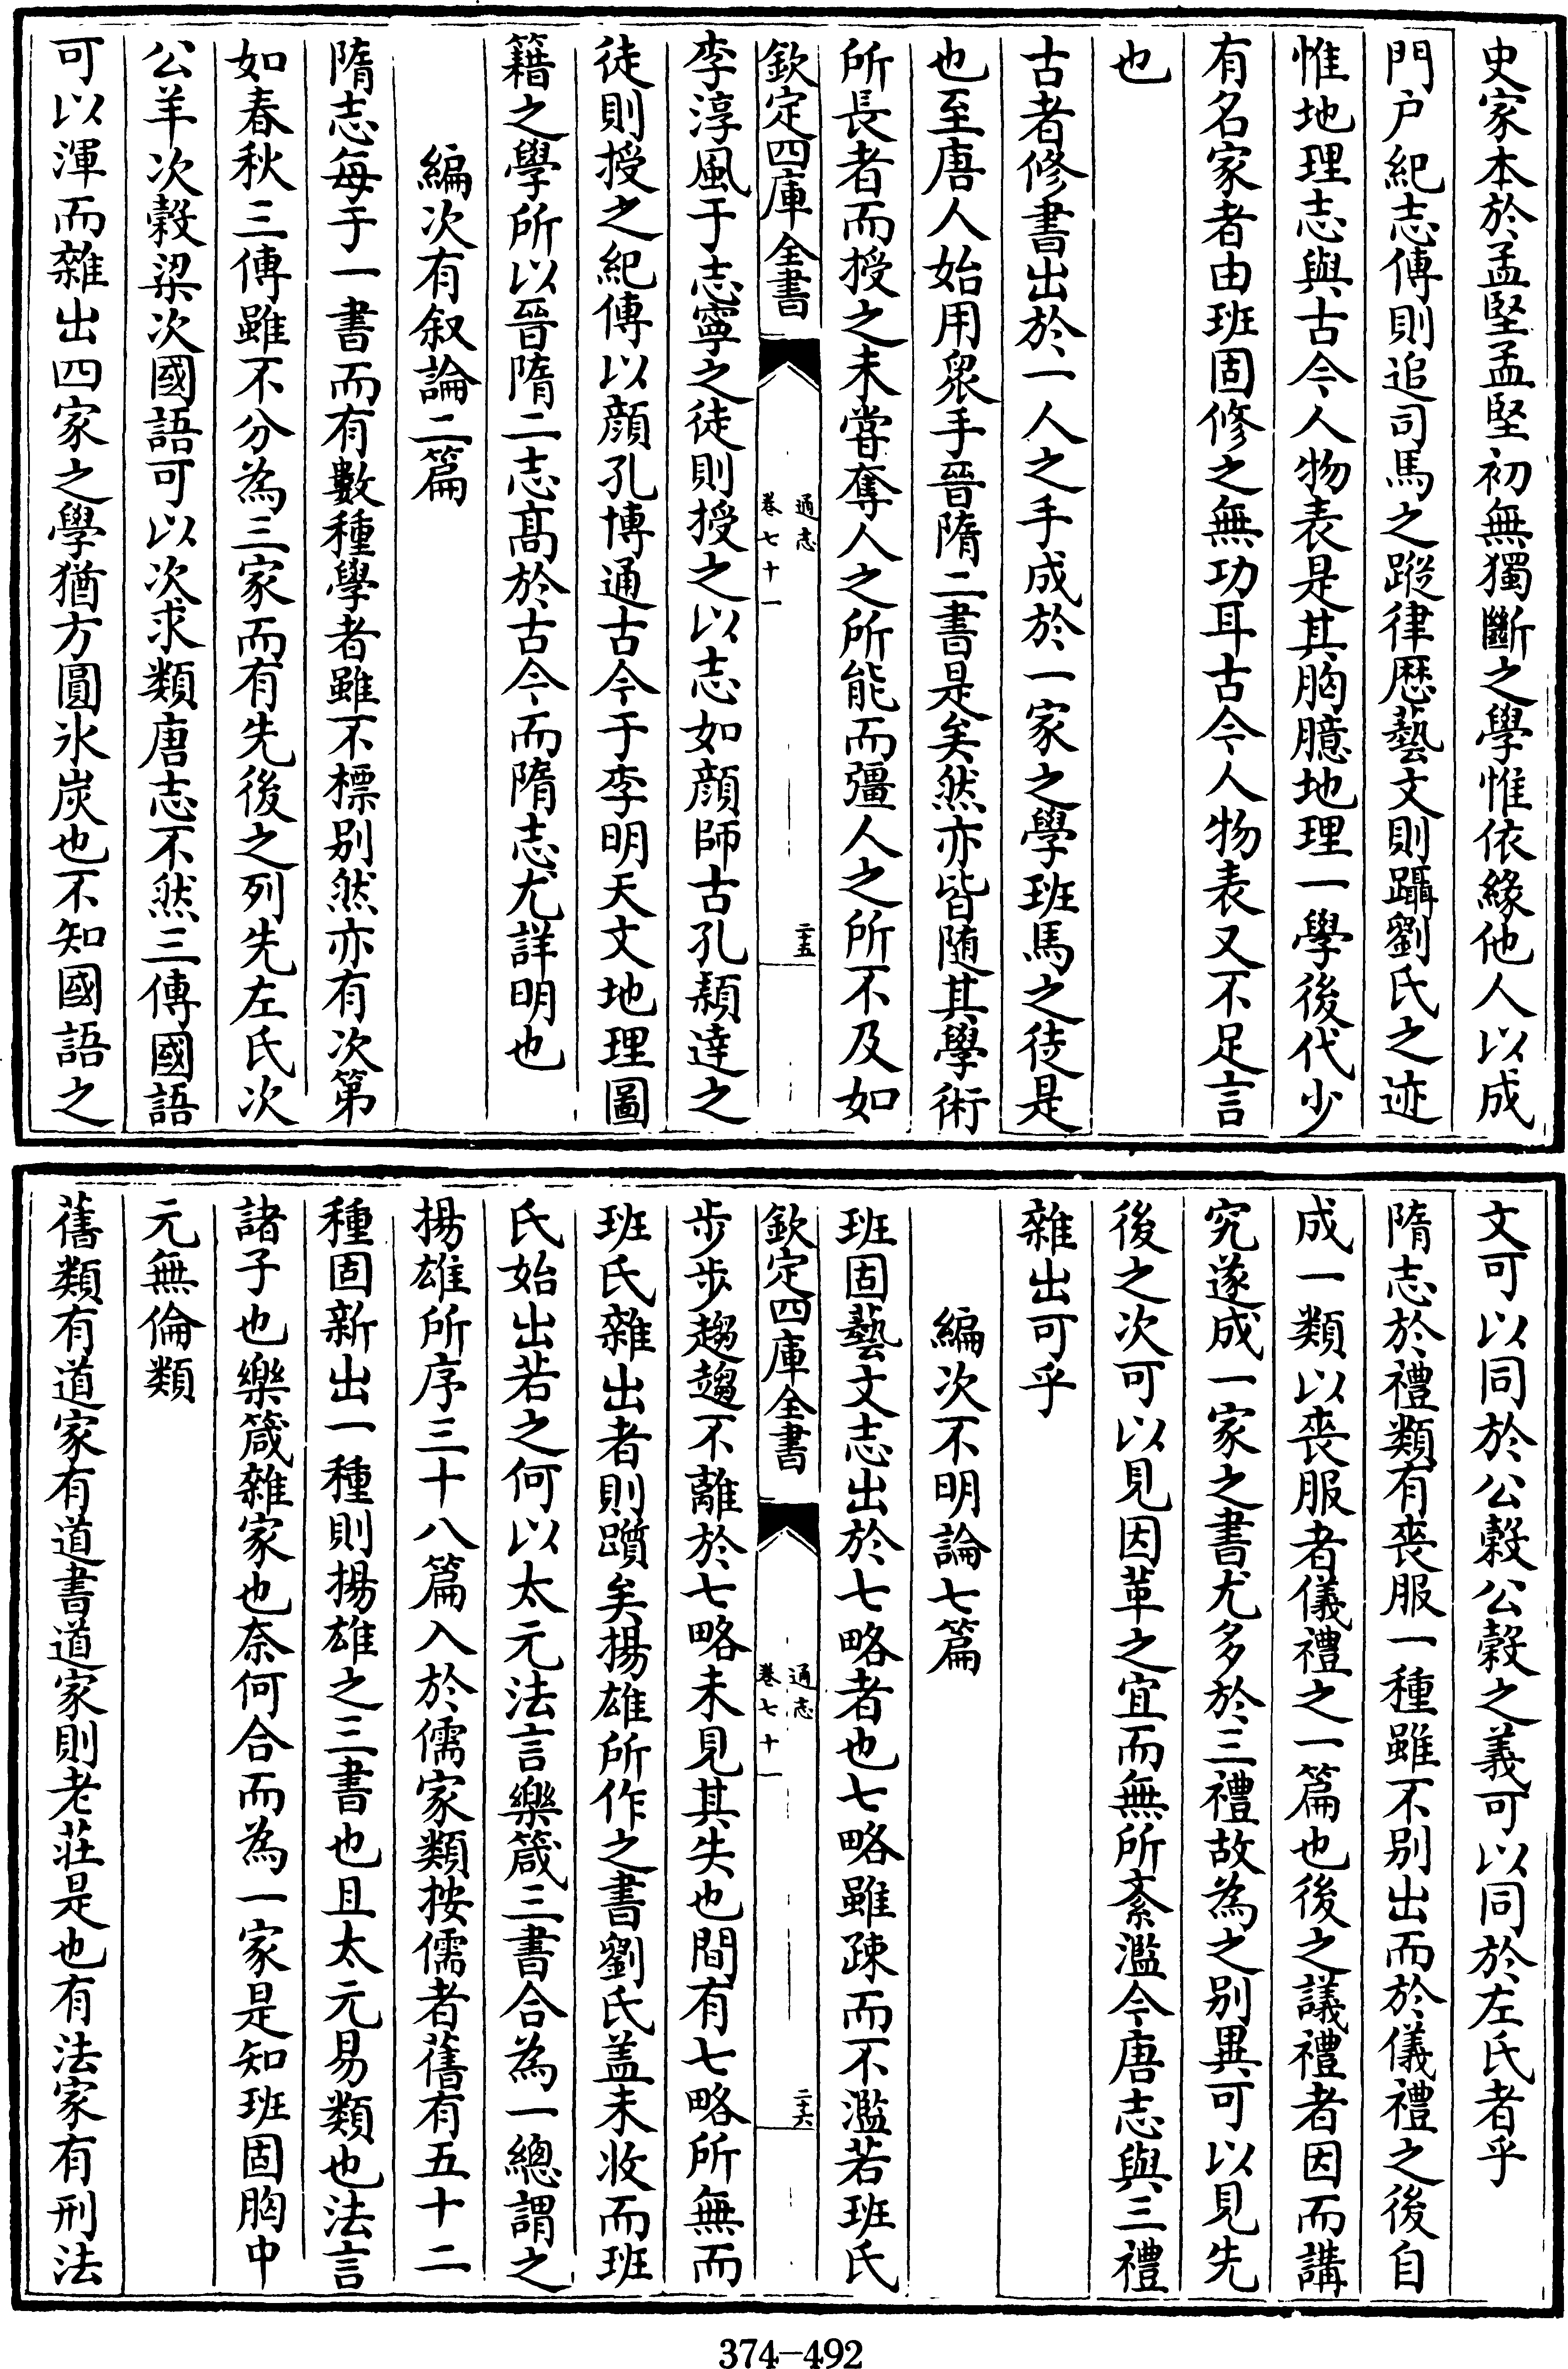 史家本於孟堅孟堅初無獨斷之學惟依緣他人以成
門户紀志傳則追司馬之蹤律歴藝文則躡劉氏之迹
惟地理志與古今人物表是其胸臆地理一學後代少
有名家者由班固修之無功耳古今人物表又不足言
也
古者修書出於一人之手成於一家之學班馬之徒是
也至唐人始用衆手晉隋二書是矣然亦皆随其學術
所長者而授之未嘗奪人之所能而彊人之所不及如
欽定四庫全書
通志
卷七十一
二十五
李淳風于志寧之徒則授之以志如顔師古孔頴達之
徒則授之紀傳以顔孔博通古今于李明天文地理圖
籍之學所以晉隋二志髙於古今而隋志尤詳明也
編次有叙論二篇
隋志每于一書而有數種學者雖不標别然亦有次第
如春秋三傳雖不分為三家而有先後之列先左氏次
公羊次榖梁次國語可以次求類唐志不然三傳國語
可以渾而雜出四家之學猶方圓氷炭也不知國語之
文可以同於公榖公榖之義可以同於左氏者乎
隋志於禮類有喪服一種雖不别出而於儀禮之後自
成一類以喪服者儀禮之一篇也後之議禮者因而講
究遂成一家之書尤多於三禮故為之别異可以見先
後之次可以見因革之宜而無所紊濫今唐志與三禮
雜出可乎
編次不明論七篇
班固藝文志出於七略者也七略雖疎而不濫若班氏
欽定四庫全書
通志
卷七十一
二十六
步步趨趨不離於七略未見其失也間有七略所無而
班氏雜出者則躓矣揚雄所作之書劉氏盖未收而班
氏始出若之何以太元法言樂箴三書合為一總謂之
揚雄所序三十八篇入於儒家類按儒者舊有五十二
種固新出一種則揚雄之三書也且太元易類也法言
諸子也樂箴雜家也奈何合而為一家是知班固胸中
元無倫類
舊類有道家有道書道家則老莊是也有法家有刑法
374-492